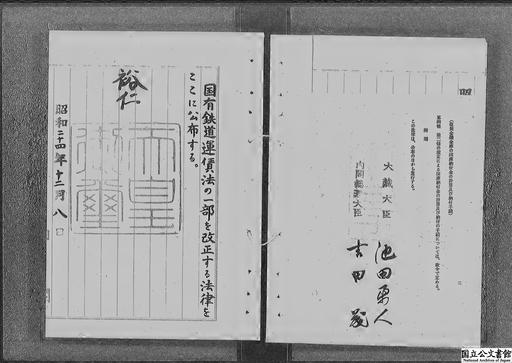 国有鉄道運賃法の一部を改正する法律を
ここに公布する。
裕仁
天皇御璽
昭和二十四年十二月八日
附則
この法律は、公布の日から施行する。
大蔵大臣
池田勇人
内閣総理大臣
吉田茂
国立公文書館
National Archives of Japan